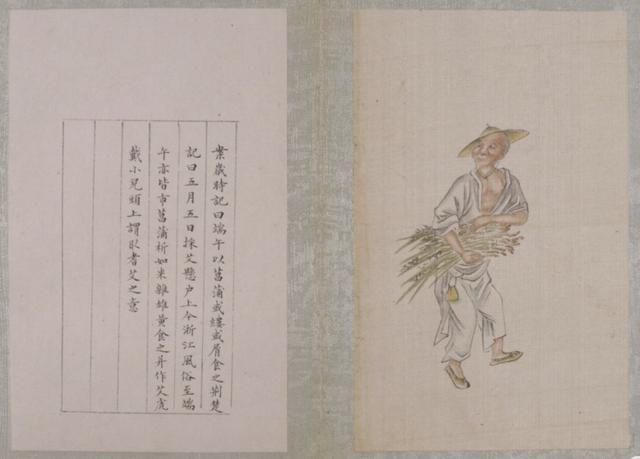 案歲時記曰端午以菖蒲或縷或屑食之荆楚
記曰五月五日採艾懸户上今浙江風俗至端
午亦皆市菖蒲析如米雜雄黃食之并作艾虎
戴小兒頭上謂取耆艾之意